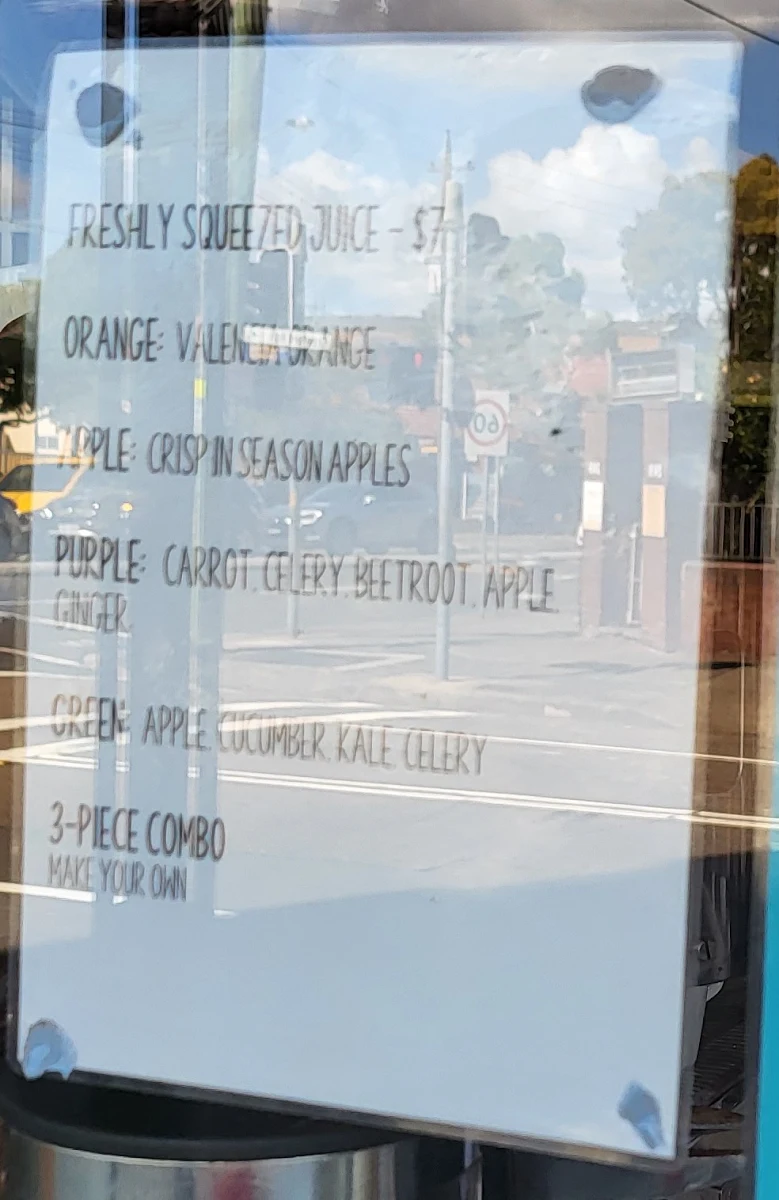 FRESHLY SQUEEZED JUICE - $7
ORANGE: VALENCIA ORANGE
APPLE: CRISP IN SEASON APPLES
PURPLE: CARROT, CELERY, BEETROOT, APPLE,
GINGER
GREEN: APPLE, CUCUMBER, KALE, CELERY
3-PIECE COMBO
MAKE YOUR OWN
60